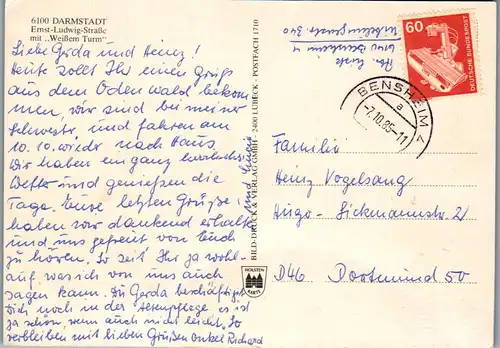 6100 DARMSTADT
Ernst-Ludwig-Straße
mit „Weißem Turm"
Liebe Gerda und Heinz!
Heute sollt Ihr einen Gruß
aus dem Odenwald bekom-
men, wir sind bei meiner
Schwester und fahren am
10.10. wieder nach Haus.
Wir haben ein ganz
Wetter und genießen die
Tage. Eure letzten Grüße
haben wir dankend erhalten
und uns gefreut von Euch
zu hören. So seit Ihr ja wohl-
auf, was sich von uns auch
sagen kann. Du Gerda beschäftigst
Dich noch in der Altenpflege, es ist
ja schön, wenn auch nicht leicht. So
verbleiben mit lieben Grüßen Onkel Richard
und
BILD-DRUCK & VERLAG GMBH · 2400 LÜBECK · POSTFACH 1710
HOLSTEN
KARTE
Bensheim 4
60
DEUTSCHE BUNDESPOST
BENSHEIM 4
a
-7.10.85-11
Familie
Heinz Vogelsang
Hugo-Sickmannstr. 2
D46 Dortmund 50